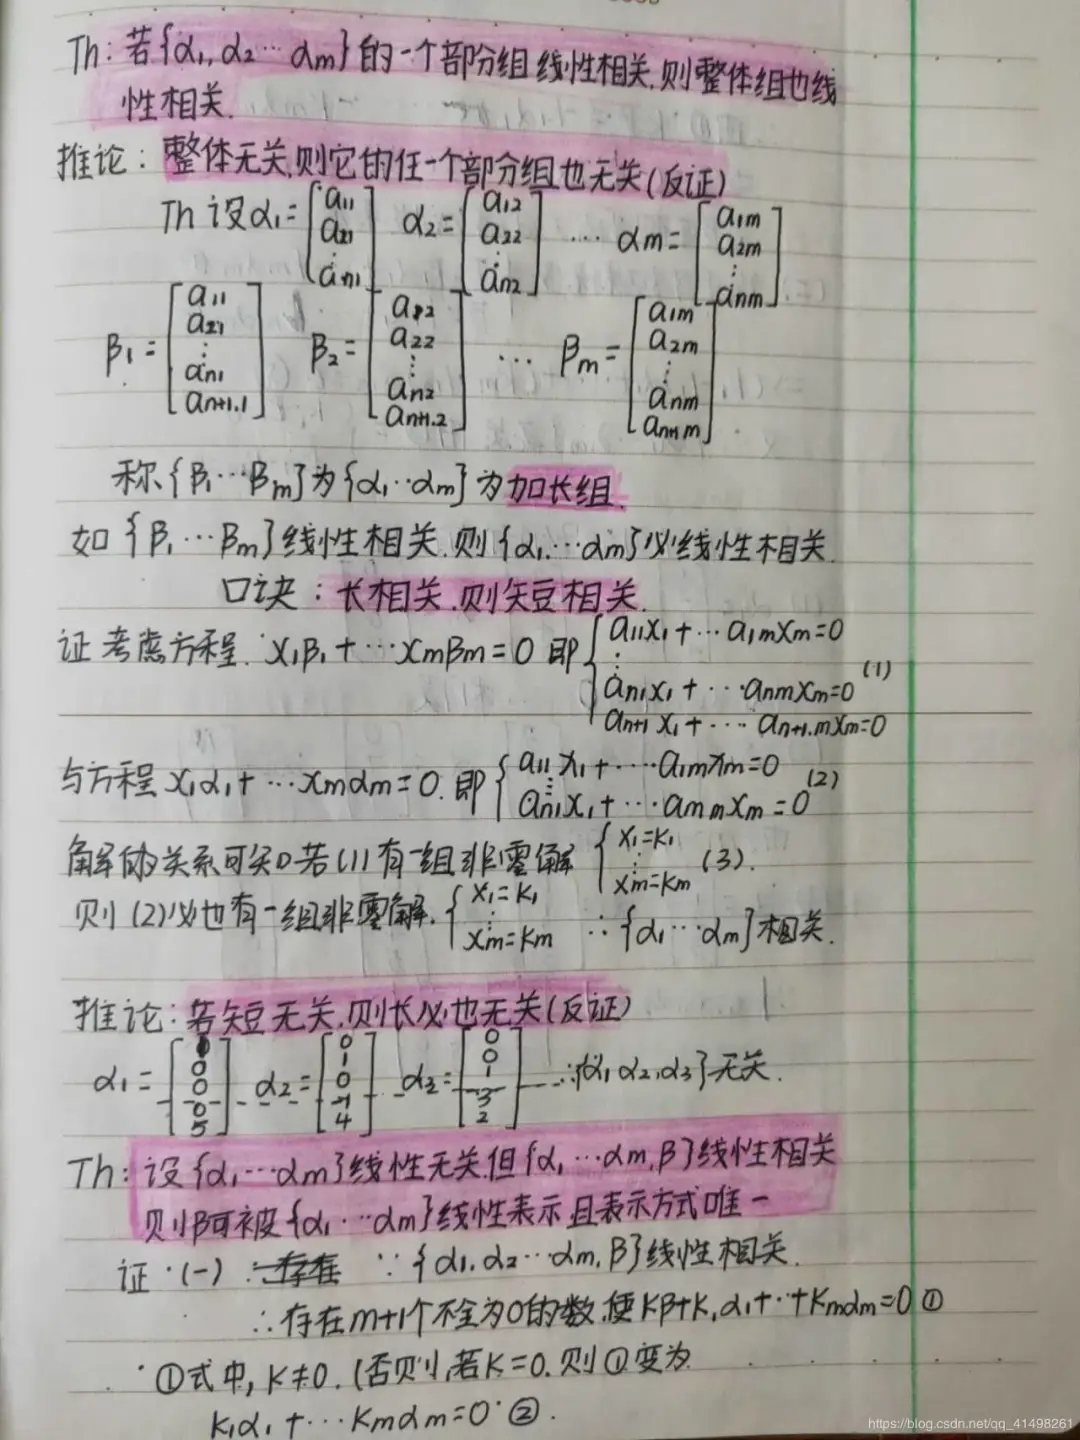 Th: 若{α₁, α₂…αm}的一个部分组线性相关,则整体组也线
性相关.
推论: 整体无关,则它的任一个部分组也无关(反证)
Th 设α₁=[a11 a21 ⋮ an1] α₂=[a12 a22 ⋮ an2] … αm=[a1m a2m ⋮ anm]
β₁=[a11 a21 ⋮ an1 an+1.1] β₂=[a12 a22 ⋮ an2 an+1.2] … βm=[a1m a2m ⋮ anm an+1m]
称{β₁…βm}为{α₁…αm}为加长组.
如{β₁…βm}线性相关.则{α₁…αm}必线性相关.
口诀: 长相关.则短相关.
证 考虑方程. x₁β₁+…xmβm=0 即 { a11x₁+…a1mxm=0 ⋮ an1x₁+…anmxm=0 an+1x₁+…an+1.mxm=0 (1)
与方程x₁α₁+…xmαm=0.即 { a11x₁+…a1mxm=0 ⋮ an1x₁+…anmxm=0 (2)
解的关系可知若(1)有一组非零解 { x₁=k₁ ⋮ xm=km (3).
则(2)必也有一组非零解. { x₁=k₁ ⋮ xm=km ∴{α₁…αm}相关.
推论: 若短无关.则长必也无关(反证)
α₁=[1 0 0 0 5] α₂=[0 1 0 -1 4] α₃=[0 0 1 3 2] ∴{α₁α₂,α₃}无关.
Th: 设{α₁…αm}线性无关.但{α₁…αm,β}线性相关
则β可被{α₁…αm}线性表示且表示方式唯一
证 (一) 存在 ∵{α₁,α₂…αm,β}线性相关.
∴存在m+1个不全为0的数.使kβ+k₁α₁+…+kmαm=0①
①式中,k≠0.(否则,若k=0.则①变为
k₁α₁+…kmαm=0 ②.
https://blog.csdn.net/qq_41498261